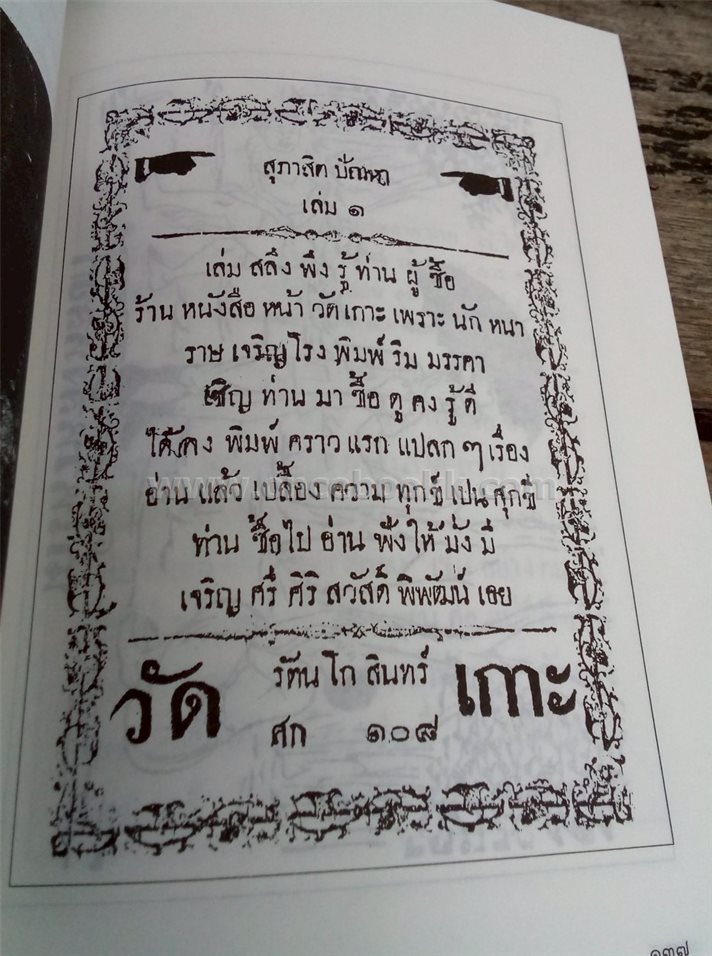 สุภาสิต
เล่ม ๑
เล่ม สลึง พึง รู้ ท่าน ผู้ ซื้อ
ร้าน หนังสือ หน้า วัด เกาะ เพราะ นัก หนา
ราษ เจริญ โรง พิมพ์ ริม มรรคา
เชิญ ท่าน มา ซื้อ ดู คง รู้ ดี
ได้ พิมพ์ คราว แรก แปลก ๆ เรื่อง
อ่าน แล้ว เปลื้อง ความ ทุกข์ เปน สุกขี
ท่าน ซื้อ ไป อ่าน ฟัง ให้ มั่ง มี
เจริญ ศรี ศิริ สวัสดิ์ พิพัฒน์ เอย
วัด รัตนโกสินทร์ เกาะ
ศก ๑๐๘
๑๓๗